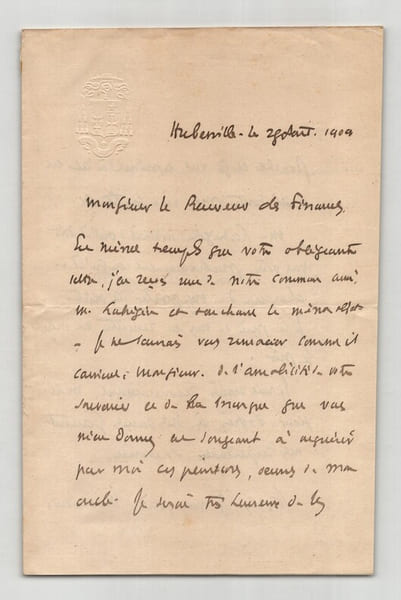 Hubersville - le 29 Août. 1909
Monsieur le Receveur des Finances,
En même temps que votre obligeante
lettre, j'en reçois une de notre commun ami,
M. et touchant le même objet
- Je ne saurais vous remercier comme il
convient, Monsieur, de l'amabilité de votre
souvenir et de la marque que vous
m'en donnez en songeant à acquérir
par moi ces peintures, œuvres de mon
oncle. Je serai très heureux de les